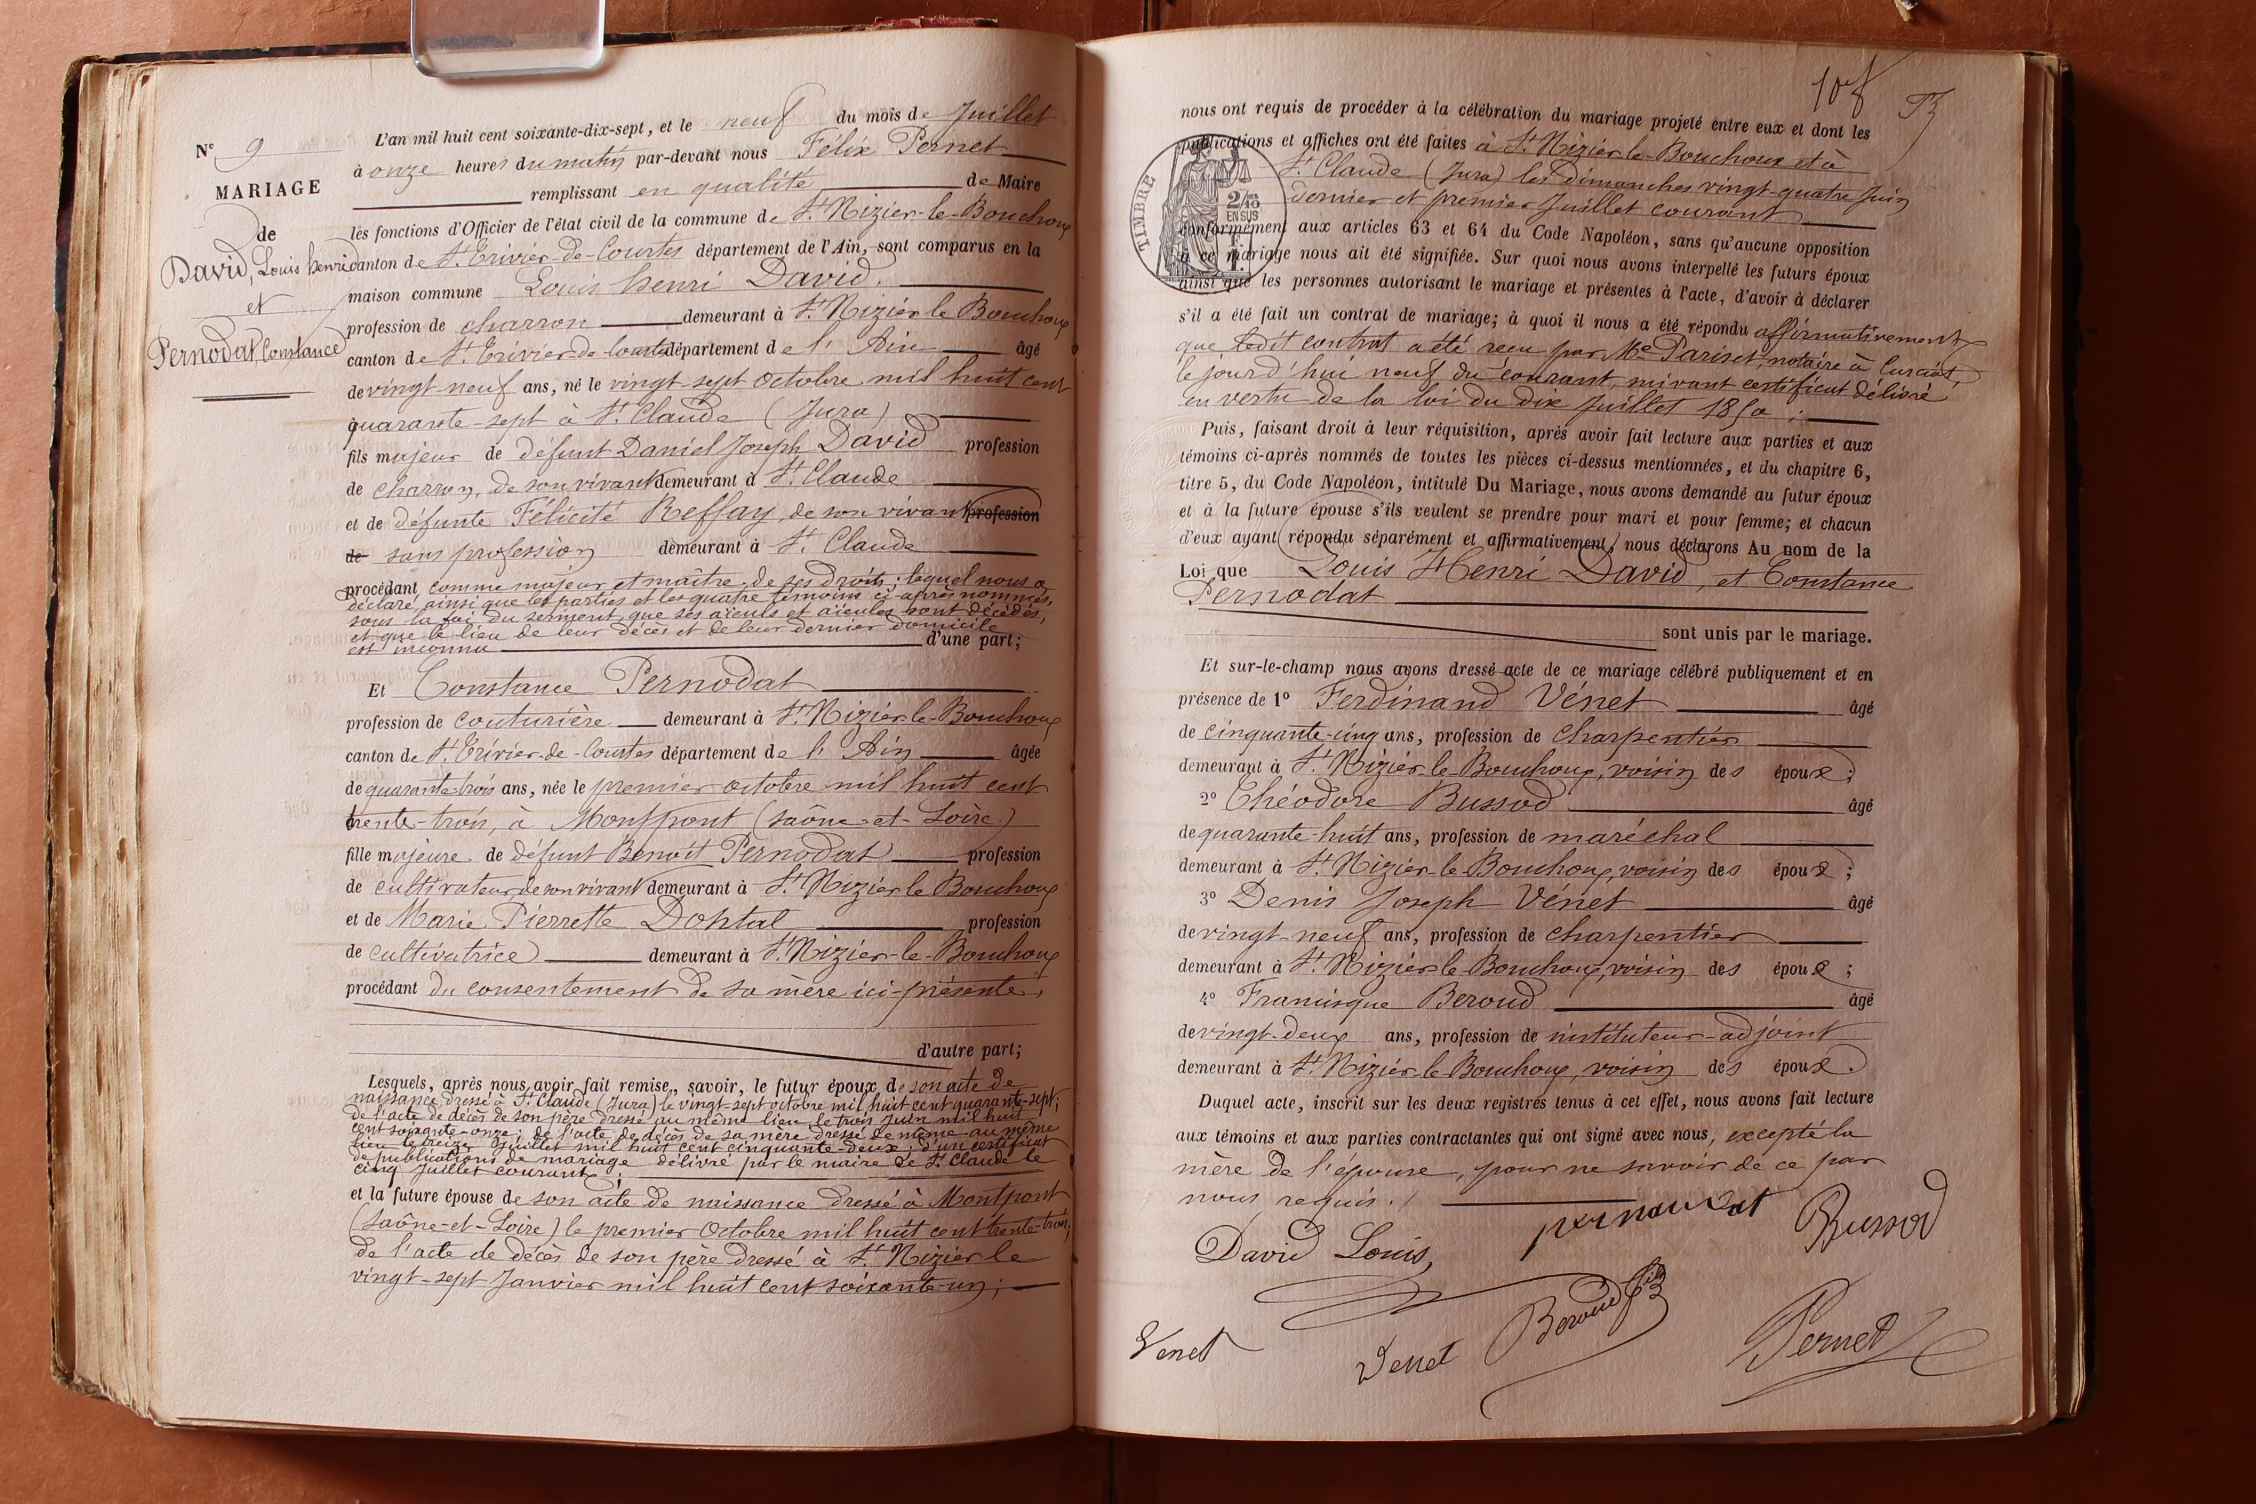 N° 9
MARIAGE
de
David, Louis henri
et
Pernodat, Constance
L'an mil huit cent soixante-dix-sept, et le neuf du mois de Juillet
à onze heures du matin par-devant nous Félix Pernet
remplissant en qualité de Maire
les fonctions d'Officier de l'état civil de la commune de St. Nizier-le-Bouchoux
canton de St. Trivier-de-Courtes département de l'Ain, sont comparus en la
maison commune Louis henri David.
profession de charron demeurant à St. Nizier le Bouchoux
canton de St. Trivier-de-Courtes département de l'Ain âgé
de vingt-neuf ans, né le vingt-sept Octobre mil huit cent
quarante-sept à St. Claude (Jura)
fils majeur de défunt Daniel Joseph David profession
de charron, de son vivant demeurant à St. Claude
et de défunte Félicité Reffay, de son vivant profession
de sans profession demeurant à St. Claude
procédant comme majeur et maître de ses droits; lequel nous a
déclaré, ainsi que les parties et les quatre témoins ci-après nommés,
sous la foi du serment, que ses aïeuls et aïeules sont décédés,
et que le lieu de leur décès et de leur dernier domicile
est inconnu d'une part;
Et Constance Pernodat
profession de couturière demeurant à St. Nizier-le-Bouchoux
canton de St. Trivier-de-Courtes département de l'Ain âgée
de quarante-trois ans, née le premier octobre mil huit cent
trente-trois, à Montpont (Saône-et-Loire)
fille majeure de défunt Benoît Pernodat profession
de cultivateur de son vivant demeurant à St. Nizier le Bouchoux
et de Marie Pierrette Dontal profession
de cultivatrice demeurant à St. Nizier-le-Bouchoux
procédant du consentement de sa mère ici-présente,
d'autre part;
Lesquels, après nous avoir fait remise, savoir, le futur époux de son acte de
naissance dressé à St. Claude (Jura) le vingt-sept octobre mil huit cent quarante-sept;
de l'acte de décès de son père dressé au même lieu le trois Juin mil huit
cent soixante-onze; de l'acte de décès de sa mère dressé de même au même
lieu le treize Juillet mil huit cent cinquante-deux; d'un certificat
de publications de mariage délivré par le maire de St. Claude le
cinq Juillet courant;
et la future épouse de son acte de naissance dressé à Montpont
(Saône-et-Loire) le premier Octobre mil huit cent trente-trois,
de l'acte de décès de son père dressé à St. Nizier le
vingt-sept Janvier mil huit cent soixante-un;
nous ont requis de procéder à la célébration du mariage projeté entre eux et dont les
publications et affiches ont été faites à St. Nizier-le-Bouchoux et à
St. Claude (Jura) les dimanches vingt-quatre Juin
dernier et premier Juillet courant
TIMBRE
2/10 EN SUS
conformément aux articles 63 et 64 du Code Napoléon, sans qu'aucune opposition
à ce mariage nous ait été signifiée. Sur quoi nous avons interpellé les futurs époux
ainsi que les personnes autorisant le mariage et présentes à l'acte, d'avoir à déclarer
s'il a été fait un contrat de mariage; à quoi il nous a été répondu affirmativement
que ledit contrat a été reçu par Me Pariset, notaire à Curciat,
le jour d'hui neuf du courant, suivant certificat délivré
en vertu de la loi du dix Juillet 1850;
Puis, faisant droit à leur réquisition, après avoir fait lecture aux parties et aux
témoins ci-après nommés de toutes les pièces ci-dessus mentionnées, et du chapitre 6,
titre 5, du Code Napoléon, intitulé Du Mariage, nous avons demandé au futur époux
et à la future épouse s'ils veulent se prendre pour mari et pour femme; et chacun
d'eux ayant répondu séparément et affirmativement, nous déclarons Au nom de la
Loi que Louis Henri David, et Constance
Pernodat
sont unis par le mariage.
Et sur-le-champ nous avons dressé acte de ce mariage célébré publiquement et en
présence de 1° Ferdinand Vénet âgé
de cinquante-cinq ans, profession de charpentier
demeurant à St. Nizier-le-Bouchoux, voisin des époux;
2° Théodore Bussod âgé
de quarante-huit ans, profession de maréchal
demeurant à St. Nizier-le-Bouchoux, voisin des époux;
3° Denis Joseph Vénet âgé
de vingt-neuf ans, profession de charpentier
demeurant à St. Nizier-le-Bouchoux, voisin des époux;
4° Francisque Beroud âgé
de vingt-deux ans, profession de instituteur-adjoint
demeurant à St. Nizier-le-Bouchoux, voisin des époux.
Duquel acte, inscrit sur les deux registres tenus à cet effet, nous avons fait lecture
aux témoins et aux parties contractantes qui ont signé avec nous, excepté la
mère de l'épouse, pour ne savoir de ce par
nous requis.
David Louis
pernaudat
Bussod
Venet
Venet
Beroud
Pernet